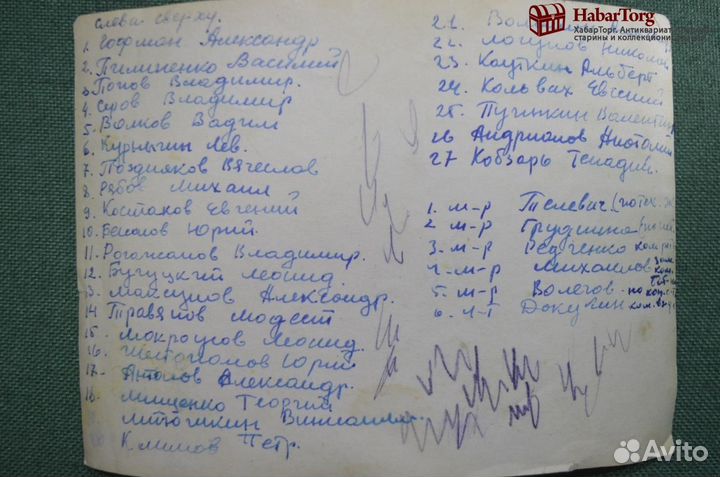 слева сверху.
1. Гофман Александр
2. Пилипенко Василий
3. Попов Владимир.
4. Серов Владимир
5. Волков Вадим
6. Курныгин Лев.
7. Поздняков Вячеслав
8. Рябов Михаил
9. Костаков Евгений
10. Юрий.
11. Рогожанов Владимир.
12. Бугуцкий Леонид.
13. Максимов Александр.
14 Травятов Модест
15. Мокроусов Леонид.
16. Юрий
17. Антонов Александр.
18. Мищенко Георгий
Митюшкин
Климов Петр.
21.
22. Николай
23. Кауткин Альберт
24. Кольвах Евгений
25. Пугинкин Валентин
26 Андрианов Анатолий
27 Кобзарь Генадий.
1. м-р Телевич
2. м-р Грудинин
3. м-р Редченко
4. м-р Михайлов
5. м-р Волегов
6. л-т Докулин
HabarTorg
ХабарТорг. Антиквариат
старины и коллекциони
Avito